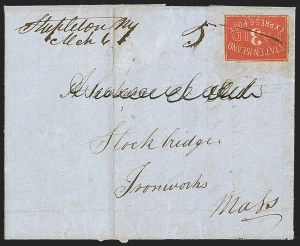 Stapleton NY
Mch 6
5
STATEN ISLAND
3
EXPRESS POST
Stockbridge
Ironworks
Mass